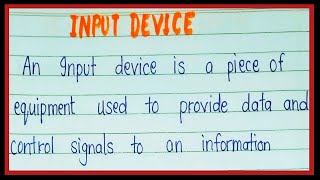 INPUT DEVICE
An Input device is a piece of
equipment used to provide data and
control signals to an information